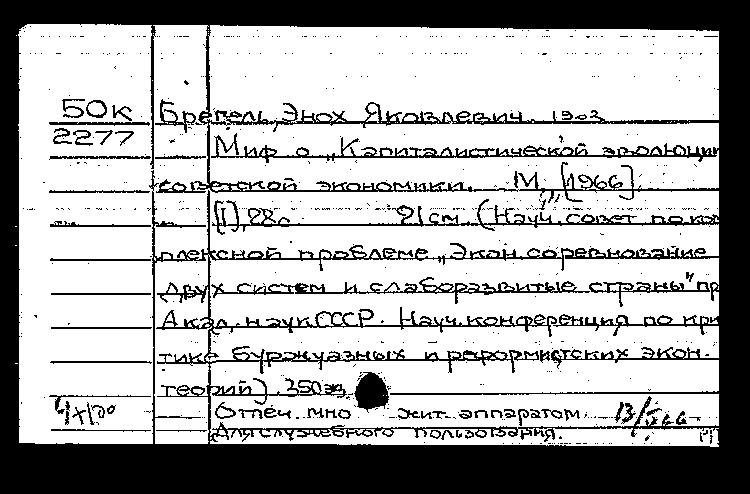 50к Брегель, Энох Яковлевич. 1903
2277
Миф о „Капиталистической эволюции
советской экономики. М., [1966].
[I], 28с. 21 см (Науч. совет по ком
плексной проблеме „Экон. соревнование
двух систем и слаборазвитые страны" пр
Акад. наук СССР. Науч. конференция по кри
тике буржуазных и реформистских экон.
теорий). 350 экз
Отпеч. множит. аппаратом. 13/
Для служебного пользования.